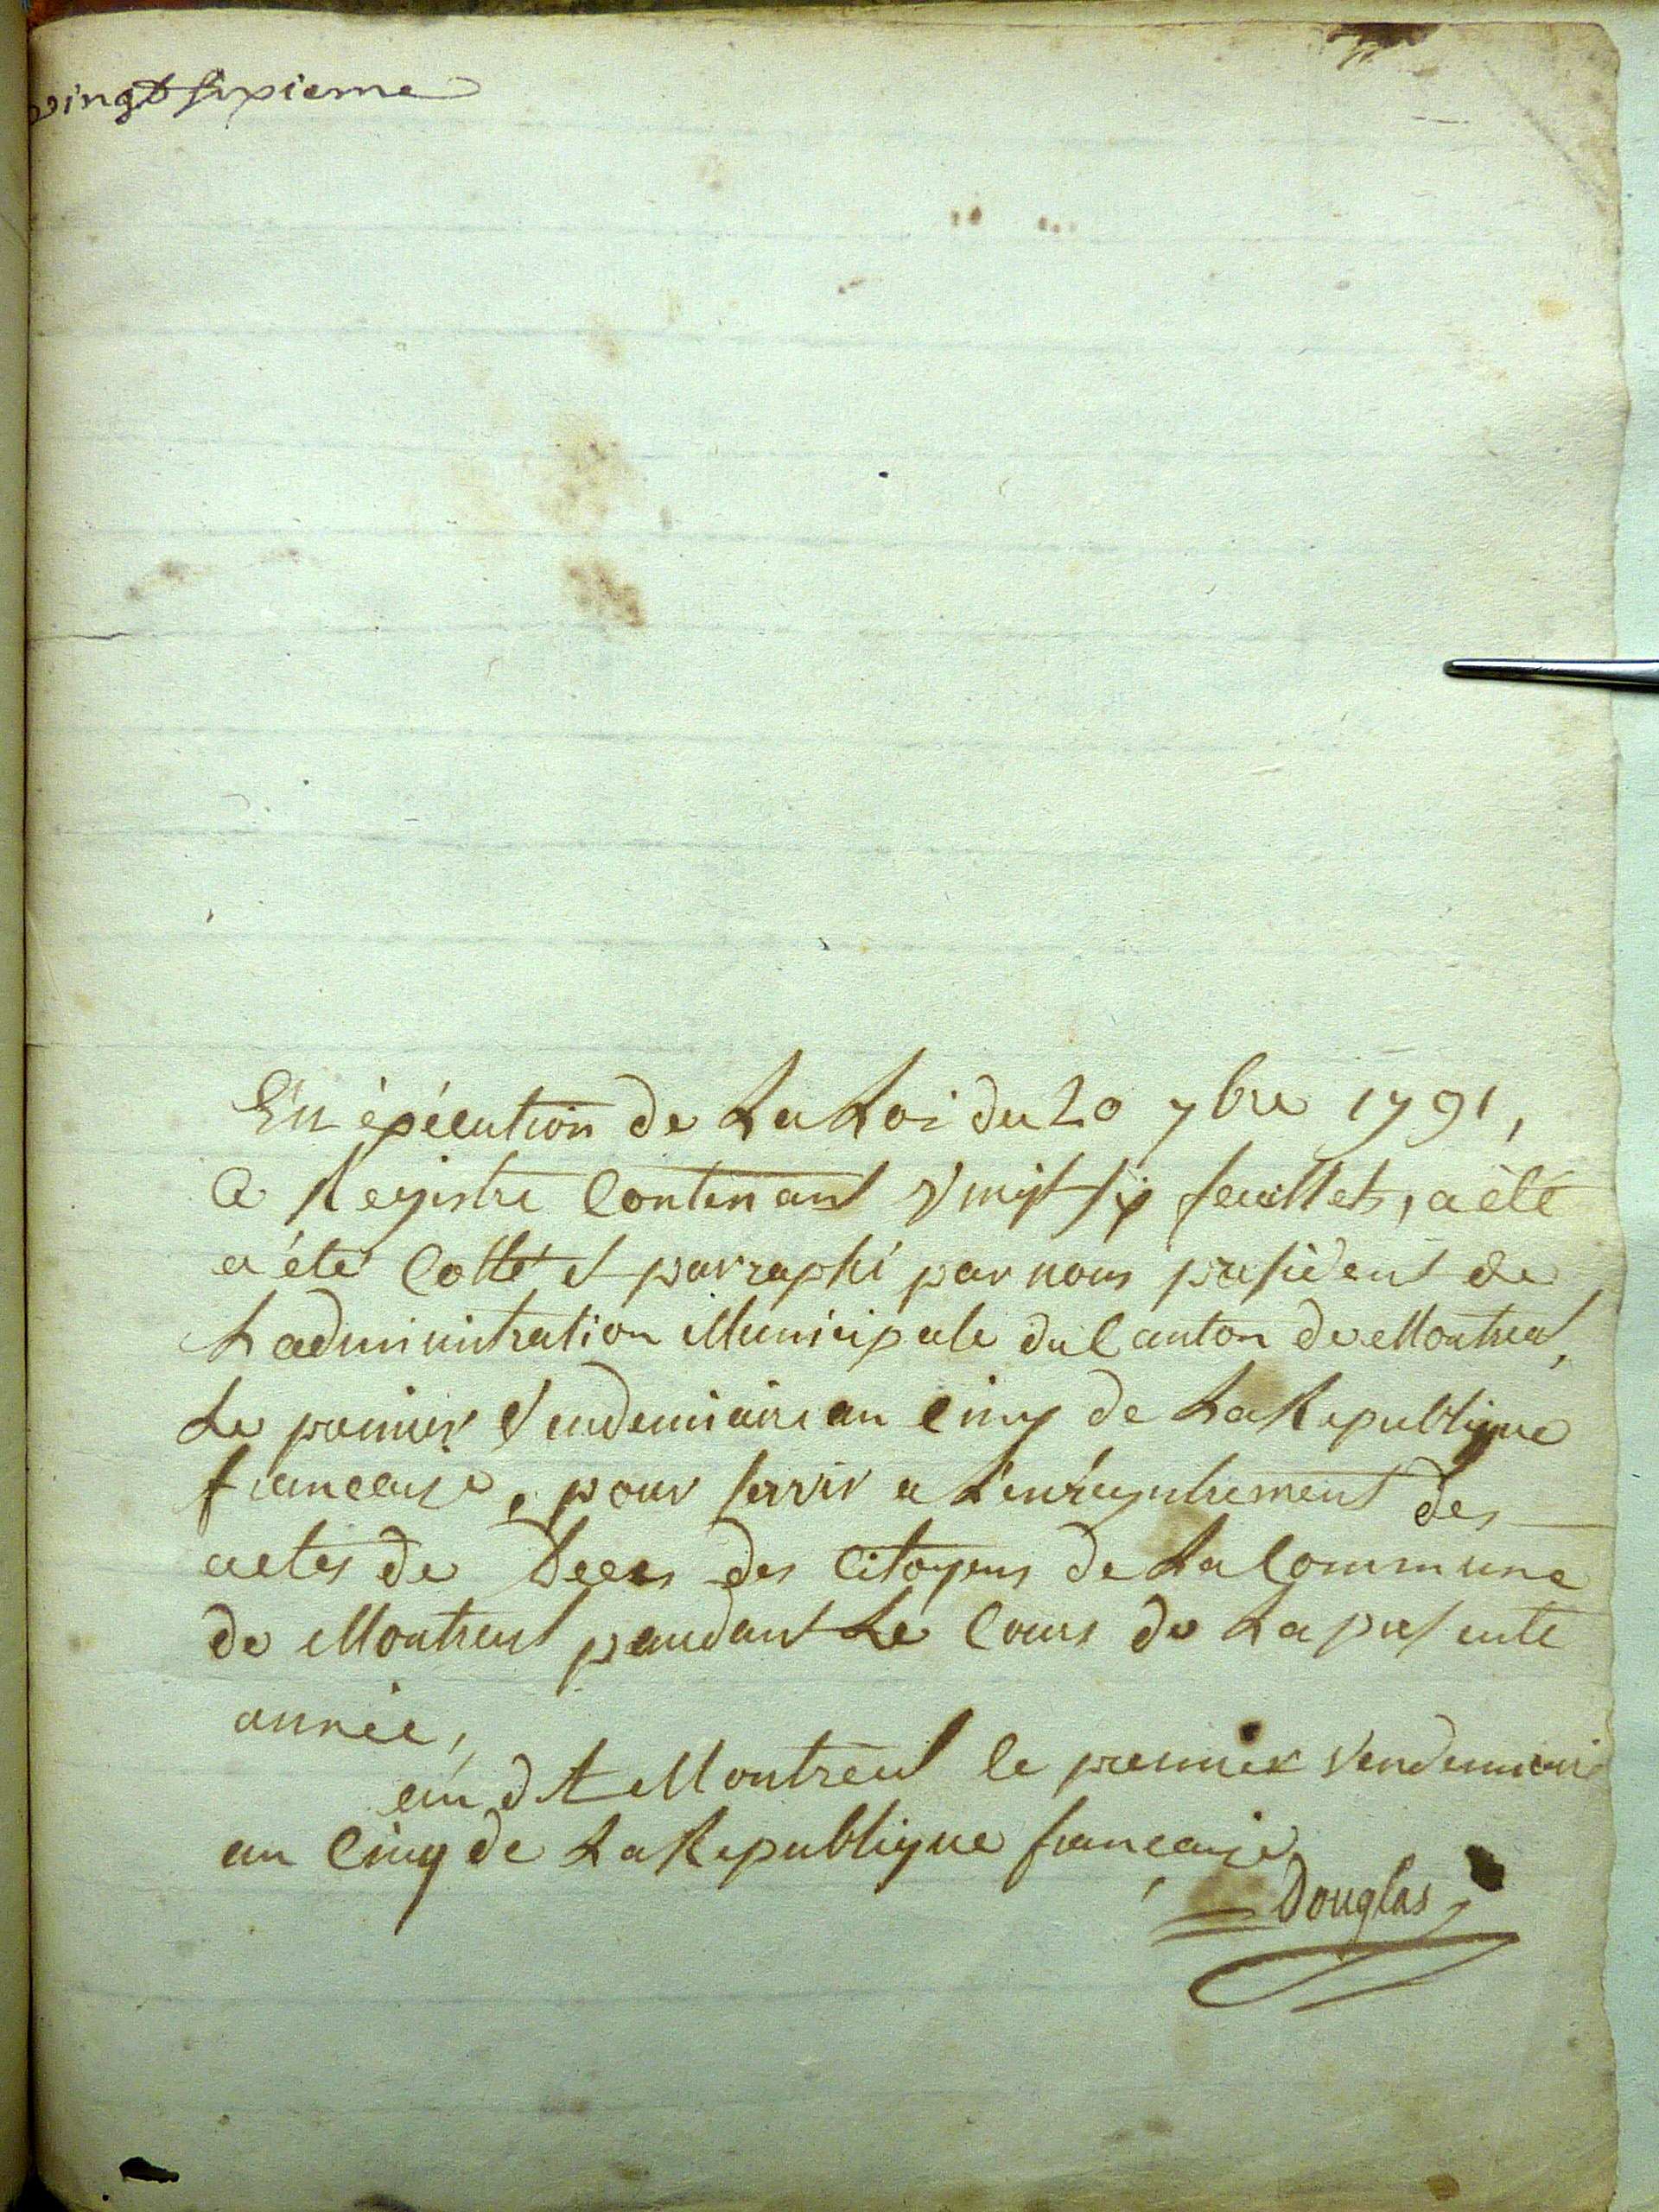 vingt sixieme
En éxécution de La Loi du 20 7bre 1791,
Ce Registre Contenant Vingt six feuillets, a été
a été Cotté et parraphé par nous president de
L'administration Municipale du Canton de Montreal,
Le premier Vendemiaire an Cinq de La Republique
francaise, pour servir a L'enregistrement des
actes de Deces des Citoyens de La Commune
de Montreal pendant Le Cours de La presente
année,
au dt Montreal le premier Vendemiaire
an Cinq de La Republique francaise,
Douglas